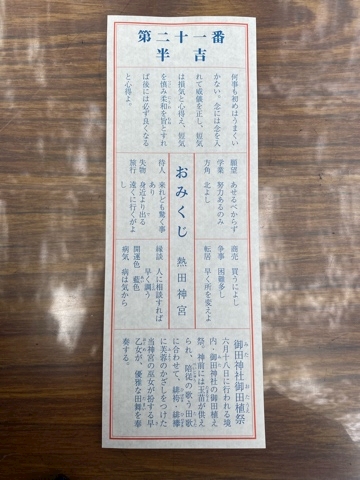 第二十一番
半吉
何事も初めはうまくい
かない。念には念を入
れて威儀を正し、短気
は損気と心得え、短気
を慎み柔和を旨とすれ
ば後には必ず良くなる
と心得よ。
願望 あせるべからず
学業 努力あるのみ
方角 北よし
おみくじ 熱田神宮
待人 来れども驚く事
あり
失物 身近より出る
旅行 遠くに行くがよ
し
商売 買うによし
争事 困難多し
転居 早く所を変えよ
縁談 人に相談すれば
早く調う
開運色 藍色
病気 病は気から
御田神社御田植祭
六月十八日に行われる境
内、御田神社の御田植え
祭。神前には玉苗が供え
られ、陪従の歌う田歌
に合わせて、緋袴・緋襷
に芙蓉のかざしをつけた
当神宮の巫女が扮する早
乙女が、優雅な田舞を奉
奏する。